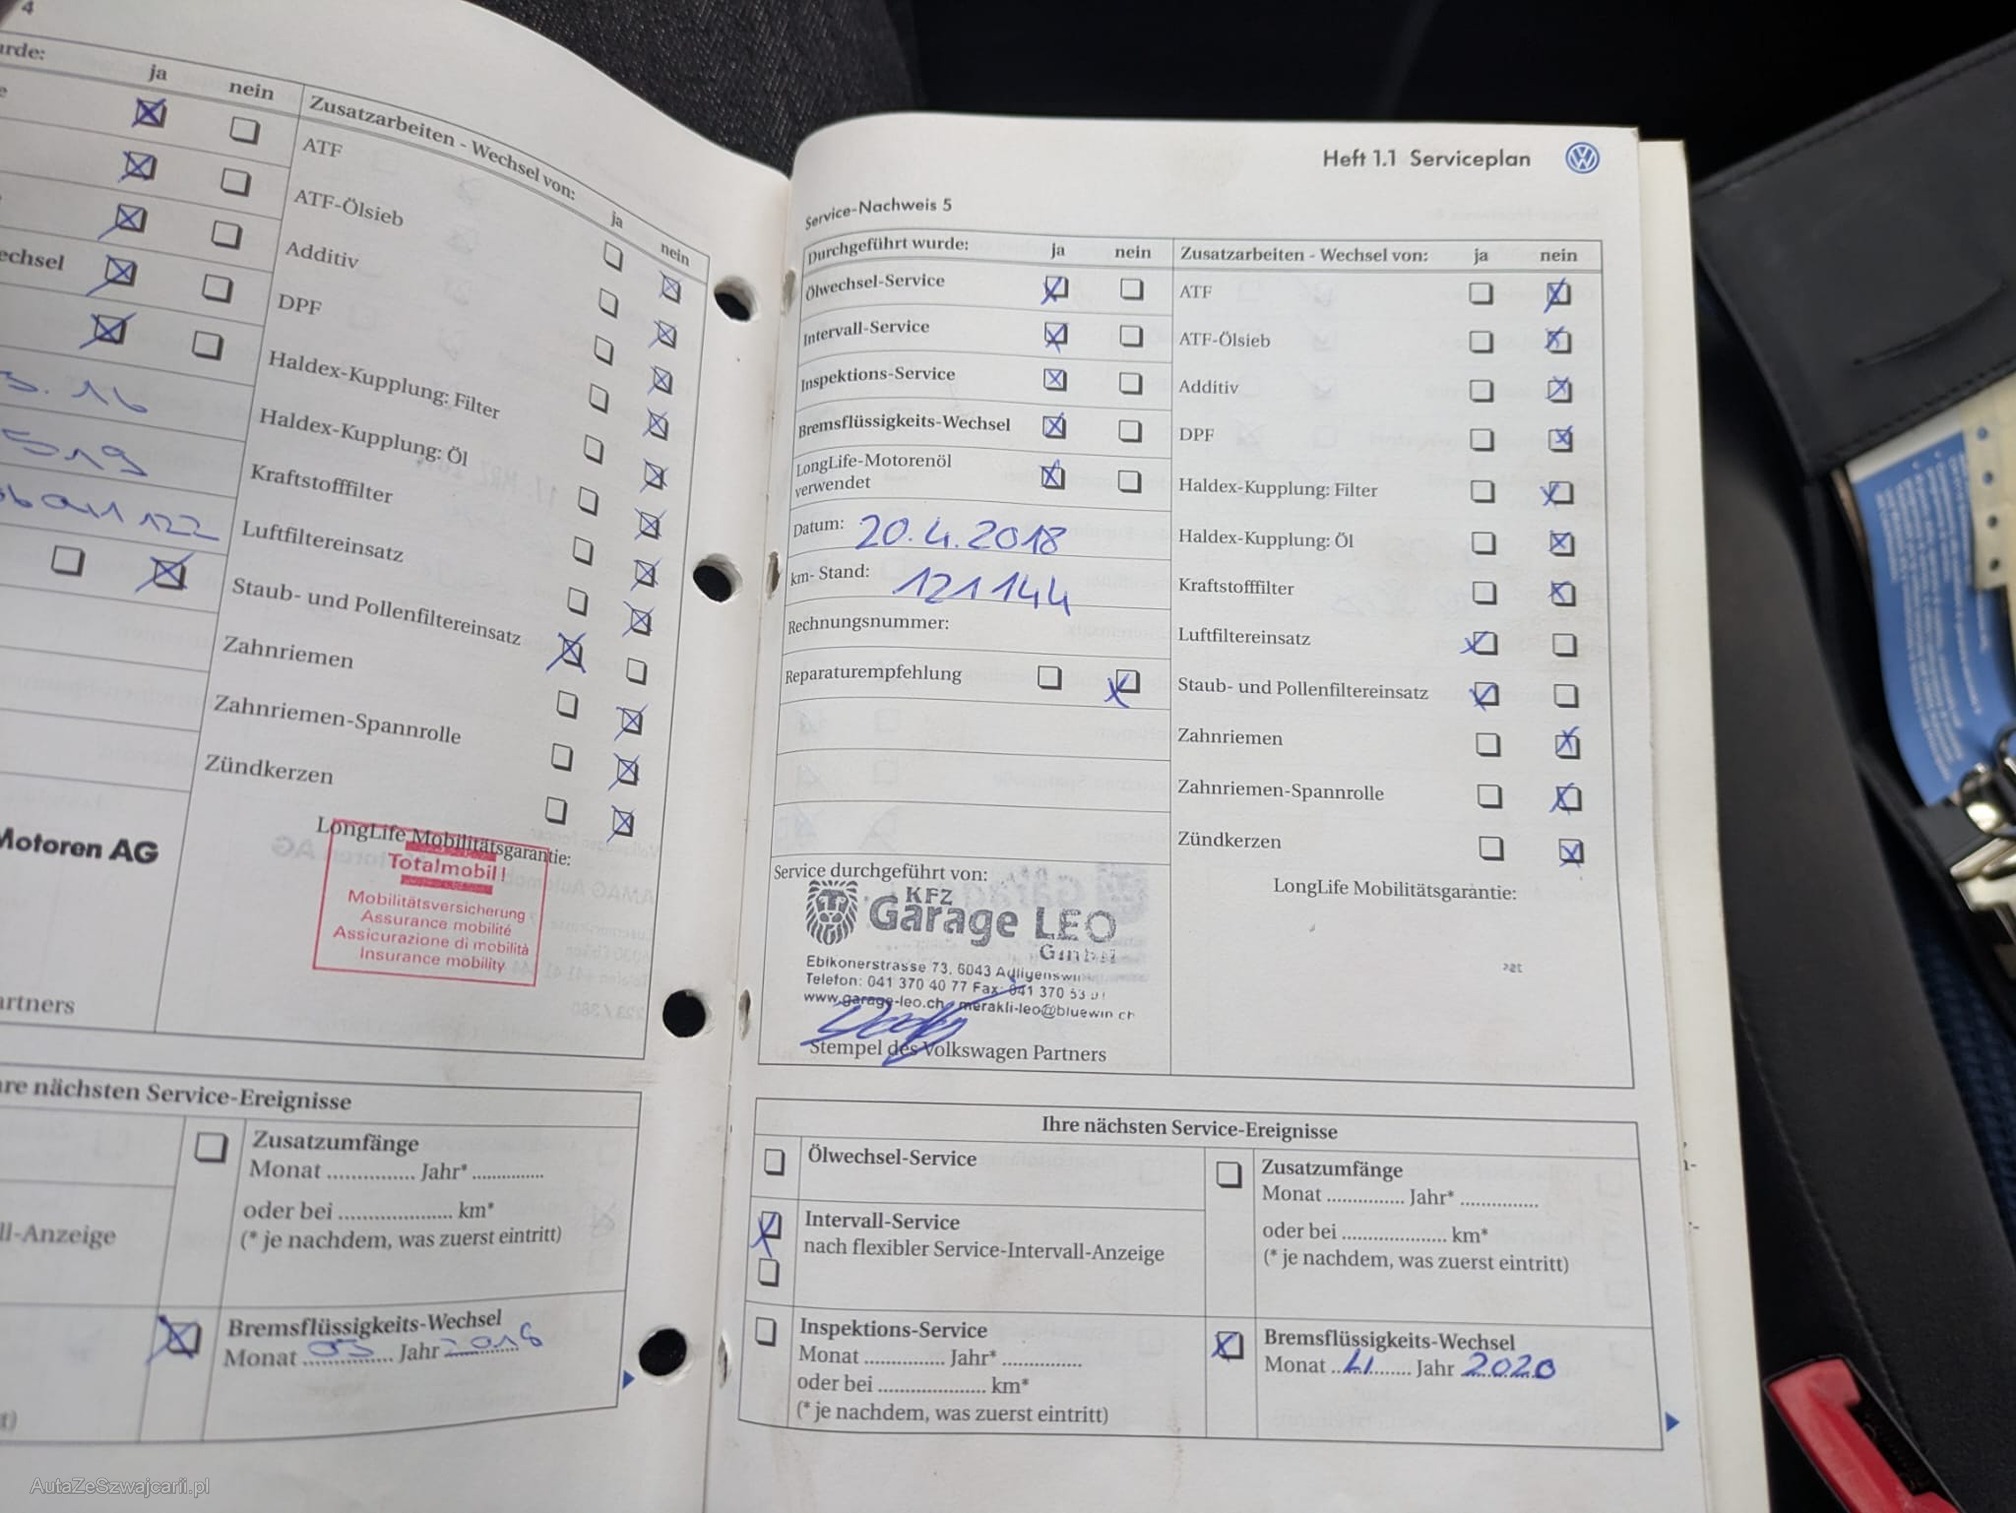 4
urde:
ja
nein
Zusatzarbeiten - Wechsel von:
ja
nein
ATF
ATF-Ölsieb
Additiv
DPF
Haldex-Kupplung: Filter
Haldex-Kupplung: Öl
Kraftstofffilter
Luftfiltereinsatz
Staub- und Pollenfiltereinsatz
Zahnriemen
Zahnriemen-Spannrolle
Zündkerzen
echsel
16
519
122
Motoren AG
LongLife Mobilitätsgarantie:
Totalmobil!
Mobilitätsversicherung
Assurance mobilité
Assicurazione di mobilità
Insurance mobility
artners
re nächsten Service-Ereignisse
Zusatzumfänge
Monat ............... Jahr* .............
oder bei .................... km*
(* je nachdem, was zuerst eintritt)
ll-Anzeige
Bremsflüssigkeits-Wechsel
Monat 03 Jahr 2018
Heft 1.1 Serviceplan
Service-Nachweis 5
Durchgeführt wurde: ja nein
Ölwechsel-Service
Intervall-Service
Inspektions-Service
Bremsflüssigkeits-Wechsel
LongLife-Motorenöl
verwendet
Datum: 20.4.2018
km- Stand: 121144
Rechnungsnummer:
Reparaturempfehlung
Zusatzarbeiten - Wechsel von: ja nein
ATF
ATF-Ölsieb
Additiv
DPF
Haldex-Kupplung: Filter
Haldex-Kupplung: Öl
Kraftstofffilter
Luftfiltereinsatz
Staub- und Pollenfiltereinsatz
Zahnriemen
Zahnriemen-Spannrolle
Zündkerzen
Service durchgeführt von:
KFZ
Garage LEO
GmbH
Ebikonerstrasse 73, 6043 Adligenswil
Telefon: 041 370 40 77 Fax: 041 370 53
www.garage-leo.ch merakli-leo@bluewin.ch
Stempel des Volkswagen Partners
LongLife Mobilitätsgarantie:
Ihre nächsten Service-Ereignisse
Ölwechsel-Service
Intervall-Service
nach flexibler Service-Intervall-Anzeige
Inspektions-Service
Monat ............... Jahr* ..............
oder bei .................... km*
(* je nachdem, was zuerst eintritt)
Zusatzumfänge
Monat .............. Jahr* ..............
oder bei ................... km*
(* je nachdem, was zuerst eintritt)
Bremsflüssigkeits-Wechsel
Monat 4 Jahr 2020
AutaZeSzwajcarii.pl